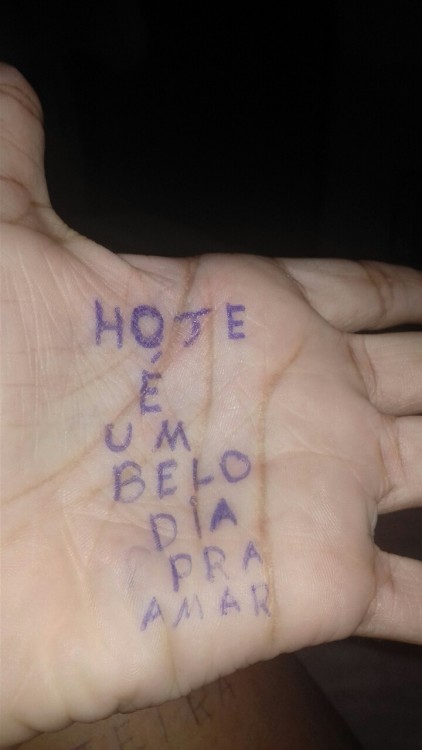 HOJE
É
UM
BELO
DIA
PRA
AMAR